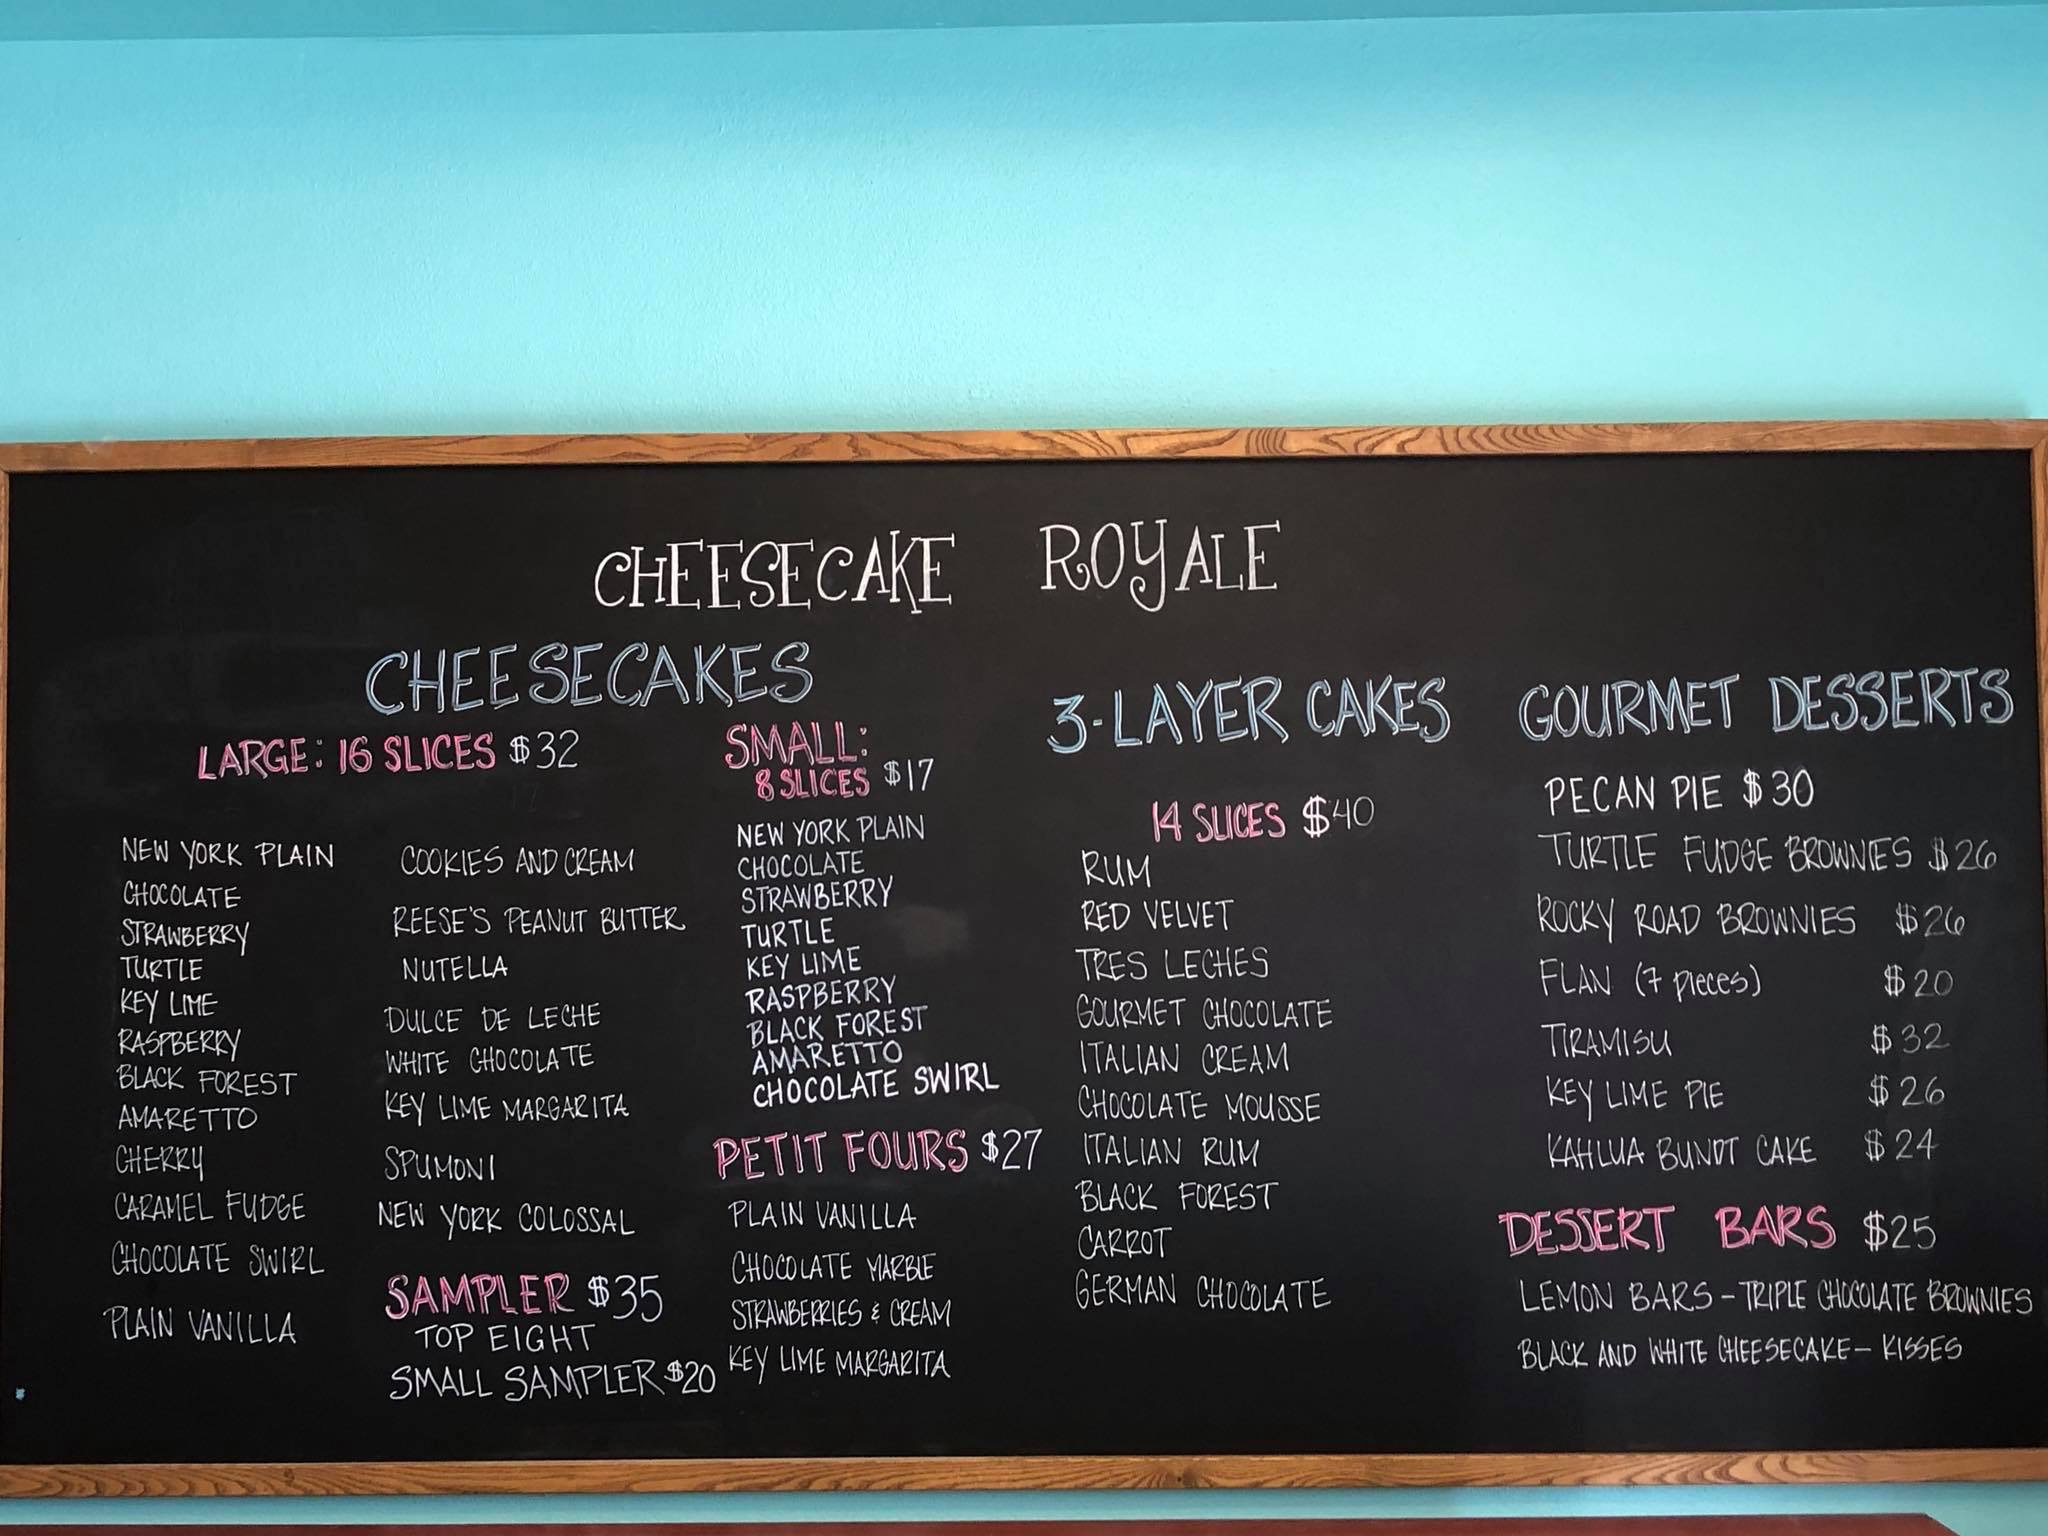 CHEESECAKE ROYALE
CHEESECAKES
LARGE: 16 SLICES $32
NEW YORK PLAIN
CHOCOLATE
STRAWBERRY
TURTLE
KEY LIME
RASPBERRY
BLACK FOREST
AMARETTO
CHERRY
CARAMEL FUDGE
CHOCOLATE SWIRL
PLAIN VANILLA
COOKIES AND CREAM
REESE'S PEANUT BUTTER
NUTELLA
DULCE DE LECHE
WHITE CHOCOLATE
KEY LIME MARGARITA
SPUMONI
NEW YORK COLOSSAL
SAMPLER $35
TOP EIGHT
SMALL SAMPLER $20
SMALL:
8 SLICES $17
NEW YORK PLAIN
CHOCOLATE
STRAWBERRY
TURTLE
KEY LIME
RASPBERRY
BLACK FOREST
AMARETTO
CHOCOLATE SWIRL
PETIT FOURS $27
PLAIN VANILLA
CHOCOLATE MARBLE
STRAWBERRIES & CREAM
KEY LIME MARGARITA
3-LAYER CAKES
14 SLICES $40
RUM
RED VELVET
TRES LECHES
GOURMET CHOCOLATE
ITALIAN CREAM
CHOCOLATE MOUSSE
ITALIAN RUM
BLACK FOREST
CARROT
GERMAN CHOCOLATE
GOURMET DESSERTS
PECAN PIE $30
TURTLE FUDGE BROWNIES $26
ROCKY ROAD BROWNIES $26
FLAN (7 pieces) $20
TIRAMISU $32
KEY LIME PIE $26
KAHLUA BUNDT CAKE $24
DESSERT BARS $25
LEMON BARS - TRIPLE CHOCOLATE BROWNIES
BLACK AND WHITE CHEESECAKE - KISSES